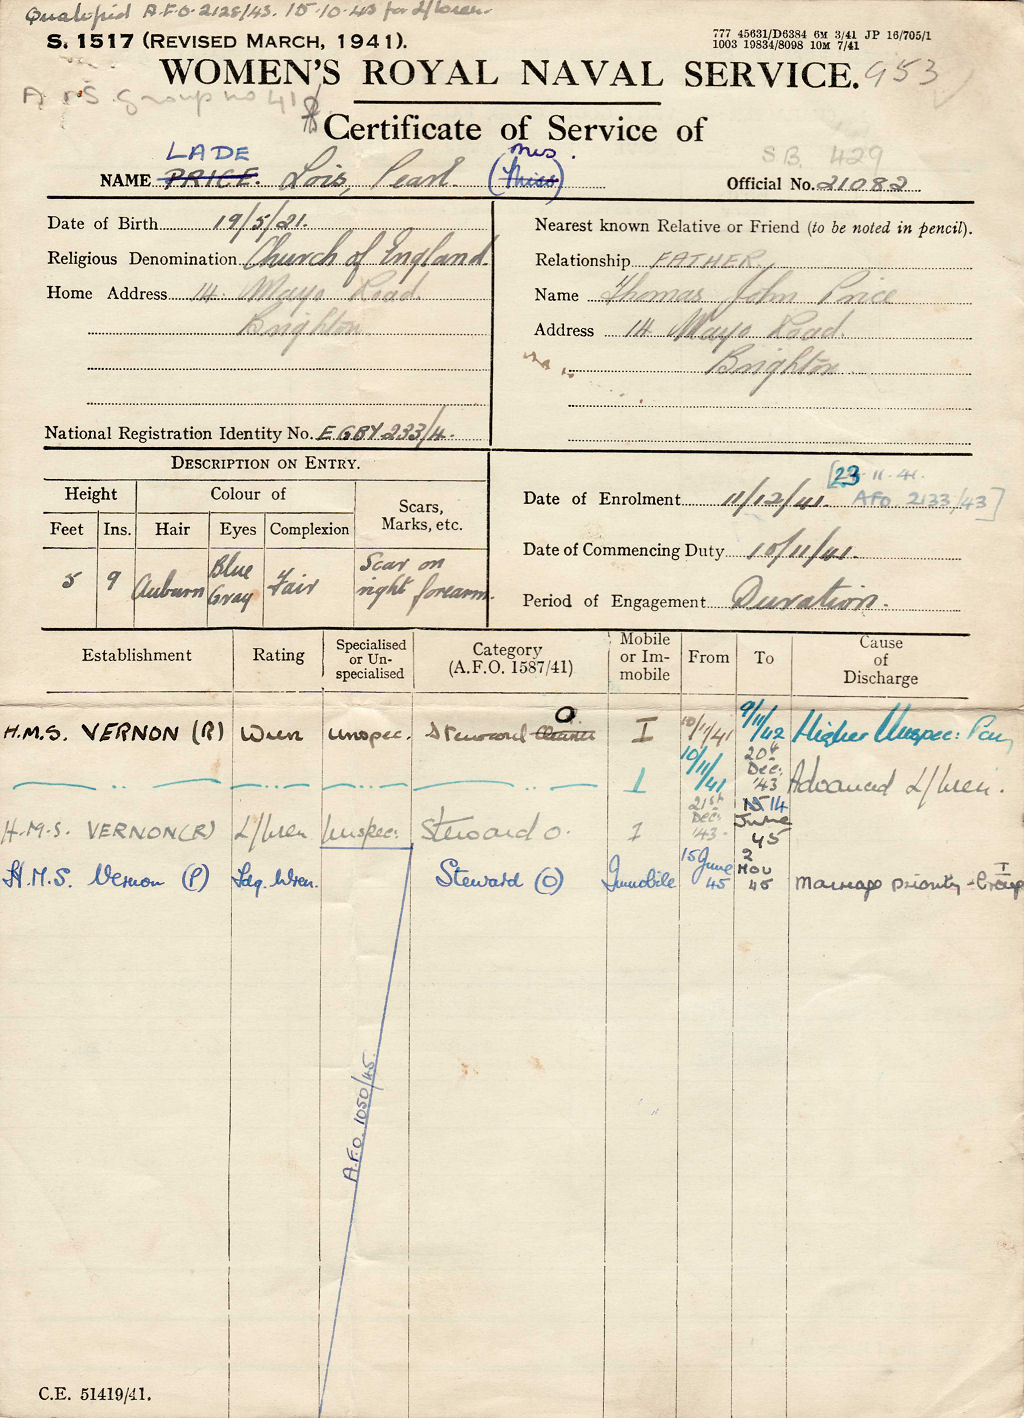 Qualified A.F.O. 2128/43. 15.10.43 for L/Wren.
S. 1517 (REVISED MARCH, 1941).
777 45631/D6384 6M 3/41 JP 16/705/1
1003 19834/8098 10M 7/41
WOMEN'S ROYAL NAVAL SERVICE. 953
A & S. group no 41
Certificate of Service of
LADE Mrs.
S.B. 429
NAME PRICE. Lois, Pearl. (Miss)
Official No. 21082
Date of Birth 19/5/21.
Religious Denomination Church of England.
Home Address 14 Mayo Road
Brighton
National Registration Identity No. EGBY 233/4.
Nearest known Relative or Friend (to be noted in pencil).
Relationship FATHER
Name Thomas John Price
Address 14 Mayo Road.
Brighton
DESCRIPTION ON ENTRY.
Height Colour of Scars, Marks, etc.
Feet Ins. Hair Eyes Complexion
5 9 Auburn Blue Gray Fair Scar on right forearm.
[23.11.41.
Date of Enrolment 11/12/41. AFO 2133/43]
Date of Commencing Duty 10/11/41.
Period of Engagement Duration.
Establishment Rating Specialised or Un-specialised Category (A.F.O. 1587/41) Mobile or Im-mobile From To Cause of Discharge
H.M.S. VERNON (R) Wren Unspec. Steward O I 10/11/41 9/11/42 Higher Unspec: Pay
— .. — — .. — I 10/11/41 20th Dec: '43 Advanced L/Wren.
H.M.S. VERNON (R) L/Wren Unspec: Steward O. I 21st Dec '43. 14 June 45
H.M.S. Vernon (P) Ldg. Wren. Steward (O) Immobile 15 June 45 2 Nov 45 Marriage priority - Group I
A.F.O. 1050/45.
C.E. 51419/41.